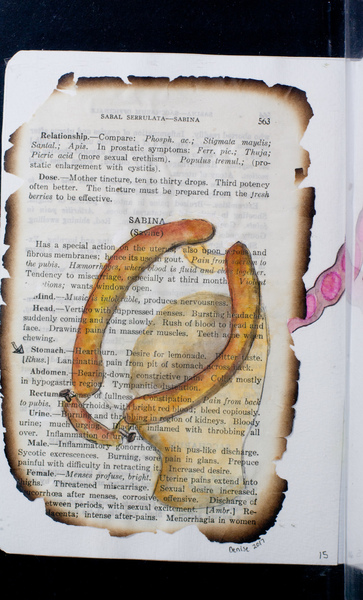 SABAL SERRULATA—SABINA 563
Relationship.—Compare: Phosph. ac.; Stigmata maydis;
Santal.; Apis. In prostatic symptoms: Ferr. pic.; Thuja;
Picric acid (more sexual erethism). Populus tremul.; (pro-
static enlargement with cystitis).
Dose.—Mother tincture, ten to thirty drops. Third potency
often better. The tincture must be prepared from the fresh
berries to be effective.
SABINA
(Savine)
Has a special action on the uterus also upon
fibrous membranes; hence its use gout. Pain from sacrum to
the pubis. Hæmorrhages, where blood is fluid and clots together.
Tendency to miscarriage, especially at third month. Violent
tions; wants windows open.
Mind.—Music intolerable, produces nervousness.
Head.—Vertigo with suppressed menses. Bursting headache,
suddenly coming and going slowly. Rush of blood to head and
face. Drawing pain in masseter muscles. Teeth when
chewing.
Stomach.—Heartburn. Desire for lemonade. Bitter taste.
Lancinating pain from pit of stomach across back.
Abdomen.—Bearing-down, constrictive pain. Colic, mostly
in hypogastric region. Tympanitic
Rectum. of fullness constipation. Pain from back
to pubis. Hæmorrhoids, with bright red blood; bleed copiously.
Urine. and throbbing in region of kidneys. Bloody
urine; much Inflamed with throbbing all
over. Inflammation of
Male.—Inflammatory gonorrhœa, with pus-like discharge.
Sycotic excrescences. Burning, sore pain in glans. Prepuce
painful with difficulty in retracting it. Increased desire.
Female.—Menses profuse, bright. Uterine pains extend into
thighs. Threatened miscarriage. Sexual desire increased.
corrhœa after menses, corrosive, offensive. Discharge of
between periods, with sexual excitement. [Ambr.] Re-
placenta; intense after-pains. Menorrhagia in women
Denise
15